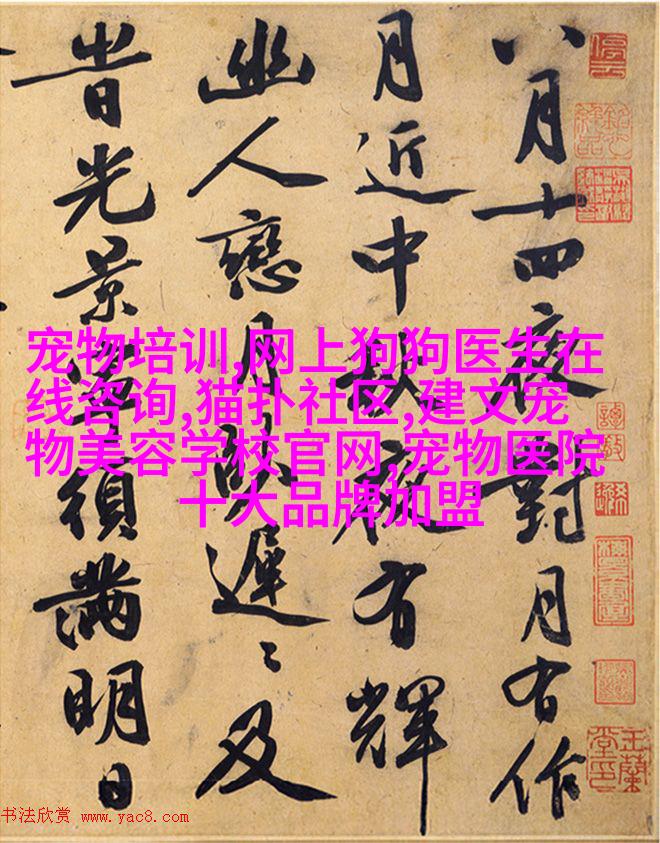 八月十四夜對月有作
月近中秋有輝
幽人戀月臥遲〻及
旹光景寧須滿明日
宠物培训,网上狗狗医生在
线咨询,猫扑社区,建文宠
物美容学校官网,宠物医院
十大品牌加盟
停雲
玉蘭堂印
书法欣赏 www.yac8.com